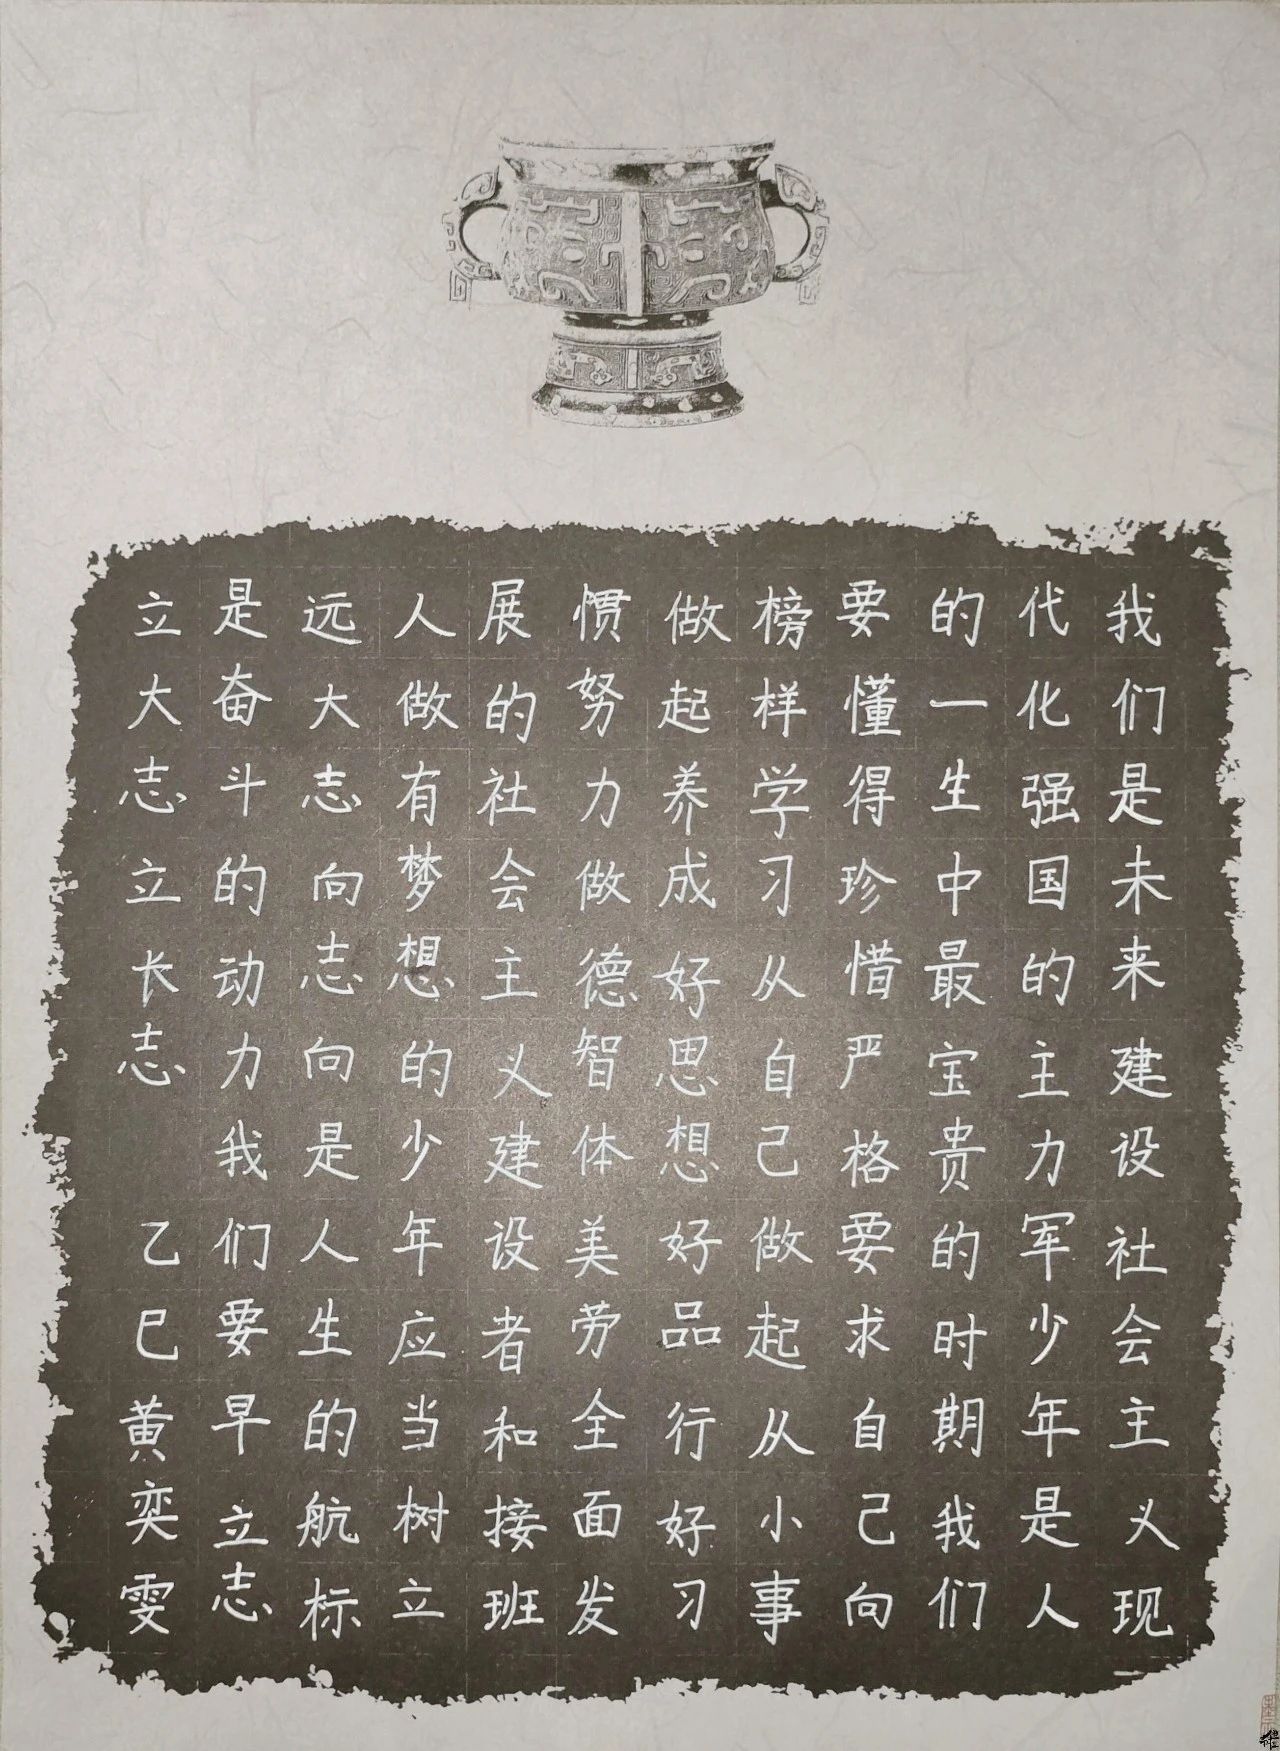 我们是未来建设社会主义现
代化强国的主力军少年是人
的一生中最宝贵的时期我们
要懂得珍惜严格要求自己向
榜样学习从自己做起从小事
做起养成好思想好品行好习
惯努力做德智体美劳全面发
展的社会主义建设者和接班
人做有梦想的少年应当树立
远大志向志向是人生的航标
是奋斗的动力我们要早立志
立大志立长志
乙巳黄奕雯